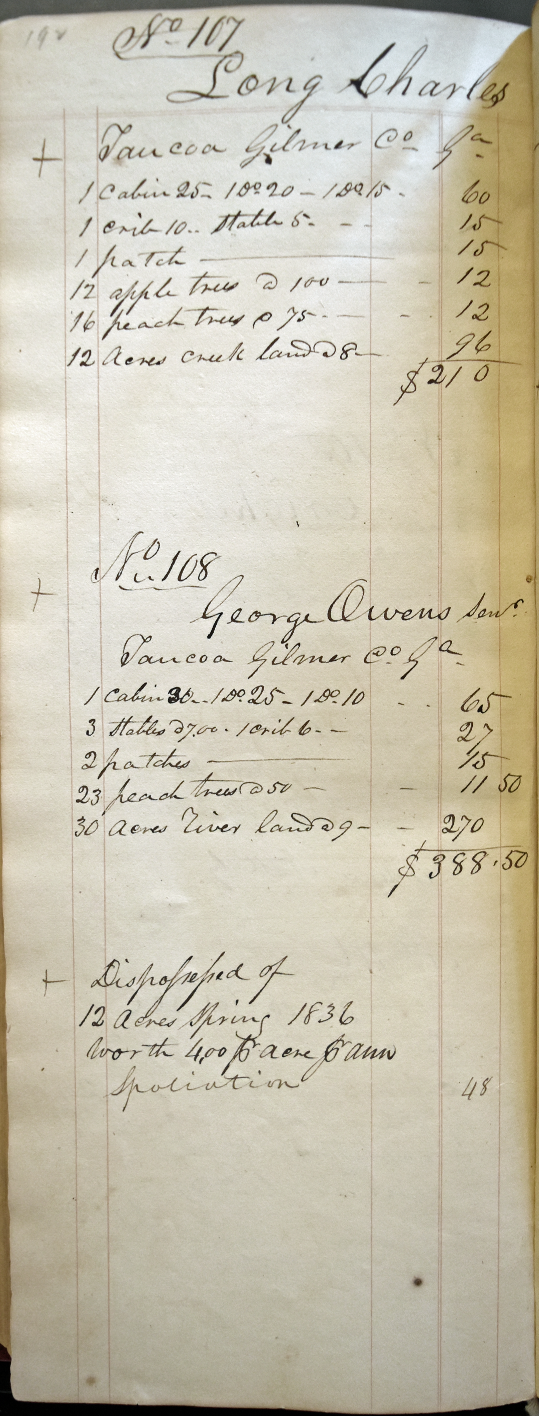 No 107
Long Charles
+ Taucoa Gilmer Co Ga
1 cabin 25 - 1 Do 20 - 1 Do 15 - 60
1 crib 10 .. Stable 5 - - - 15
1 patch — 15
12 apple trees @ 100 — - 12
16 peach trees @ 75 - — - 12
12 Acres creek land @ 8 — 96
$210
+ No 108
George Owens Senr
Taucoa Gilmer Co Ga
1 cabin 30 - 1 Do 25 - 1 Do 10 - - 65
3 Stables @ 7.00 - 1 crib 6 - - 27
2 patches — 15
23 peach trees @ 50 - - 11 50
30 Acres River land @ 9 - - 270
$388.50
+ Dispossessed of
12 Acres Spring 1836
worth 4,00 pr acre pr ann
Spoliation 48